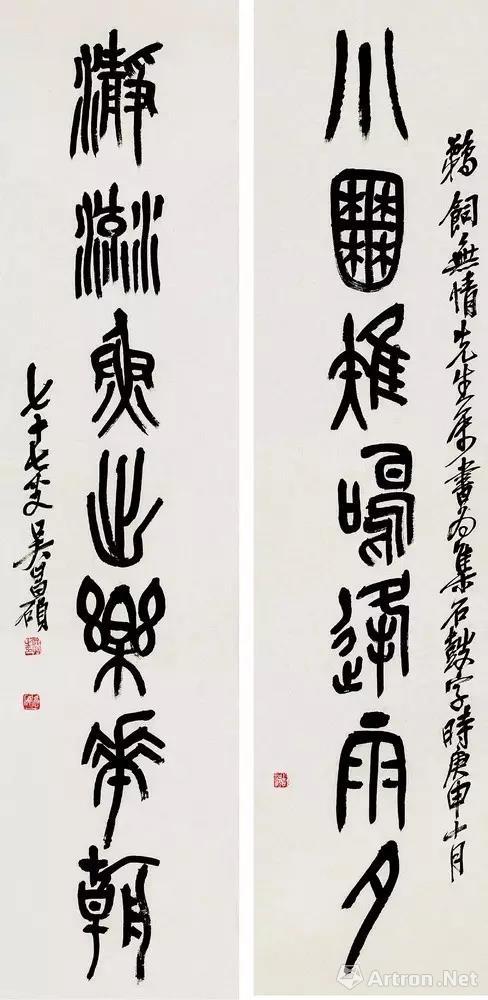 小囿雉鳴逢雨夕
鵜飼無情先生屬書為集石鼓字時庚申十月
瀞流魚出樂華朝
七十七叟吳昌碩
Artron.Net